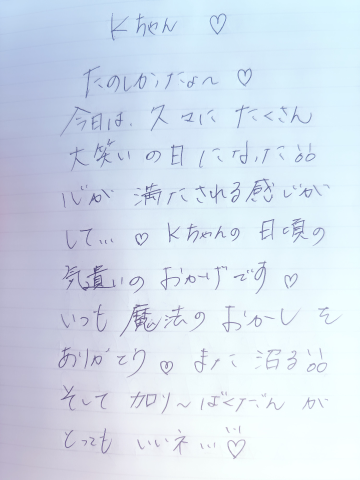 Kちゃん ♡
たのしかったよ〜 ♡
今日は、久々に たくさん
大笑いの日になった
心が 満たされる感じが
して… ♡ Kちゃんの日頃の
気遣いの おかげです ♡
いつも 魔法の おかしを
ありがとう ♡ また 沼る
そして カロリ〜ばくだん が
とっても いいネ… ♡